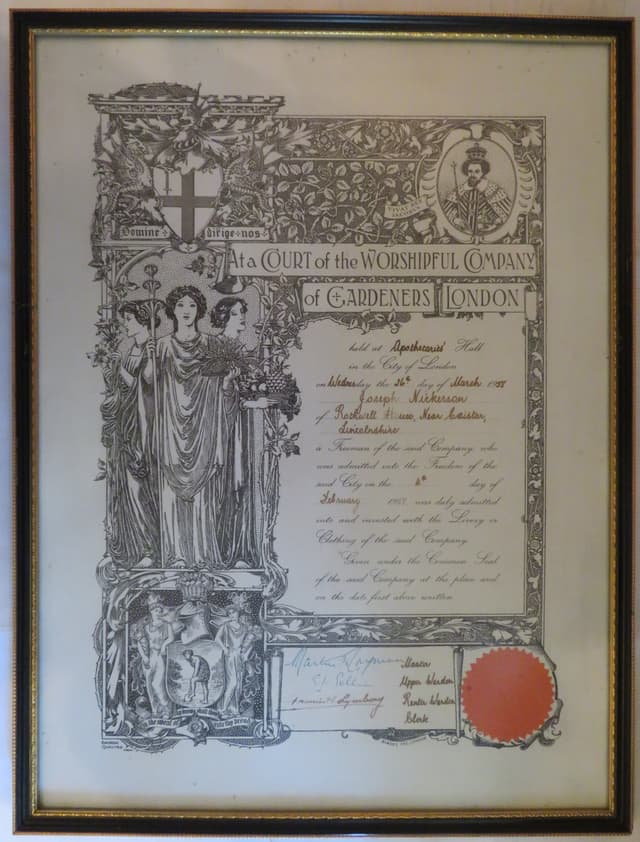 Domine dirige nos
VIVAT REX
JACOBUS
At a COURT of the WORSHIPFUL COMPANY
of GARDENERS LONDON
held at Apothecaries' Hall
in the City of London
on Wednesday the 26th day of March 1958
Joseph Nickerson
of Rothwell House, Near Caistor,
Lincolnshire
a Freeman of the said Company who
was admitted into the Freedom of the
said City on the 4th day of
February 1958 was duly admitted
into and invested with the Livery or
Clothing of the said Company
Given under the Common Seal
of the said Company at the place and
on the date first above written
Master
Upper Warden
Renter Warden
Clerk
In the sweat of thy brows shalt thou eat thy bread